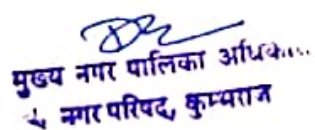 मुख्य नगर पालिका अधिक....
नगर परिषद, कुम्भराज